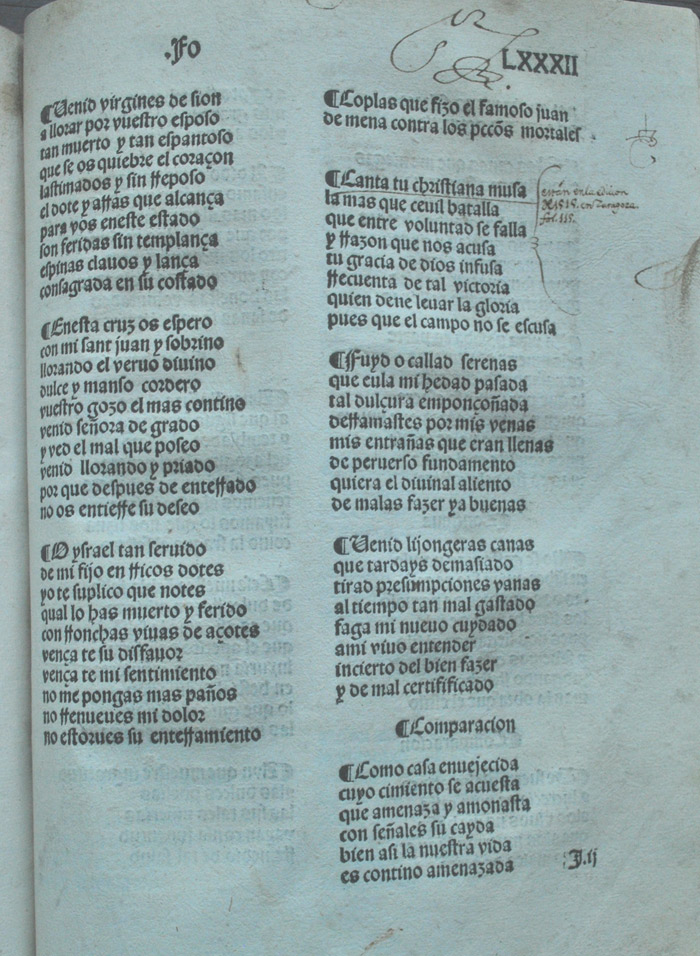 .Fo
LXXXII
¶Venid virgines de sion
a llorar por vuestro esposo
tan muerto y tan espantoso
que se os quiebre el coraçon
lastimados y sin rreposo
el dote y arras que alcança
para vos eneste estado
son feridas sin templança
espinas clauos y lança
consagrada en su costado
¶Enesta cruz os espero
con mi sant juan y sobrino
llorando el veruo diuino
dulce y manso cordero
vuestro gozo el mas contino
venid señora de grado
y ved el mal que poseo
venid llorando y priado
por que despues de enterrado
no os entierre su deseo
¶O ysrael tan seruido
de mi fijo en rricos dotes
yo te suplico que notes
qual lo has muerto y ferido
con rronchas viuas de açotes
vença te su disfauor
vença te mi sentimiento
no me pongas mas paños
no rrenueues mi dolor
no estorues su enterramiento
¶Coplas que fizo el famoso juan
de mena contra los pccõs mortales
¶Canta tu christiana musa
la mas que ceuil batalla
que entre voluntad se falla
y rrazon que nos acusa
tu gracia de dios infusa
rrecuenta de tal victoria
quien deue leuar la gloria
pues que el campo no se escusa
están en la edicion
de 1515. en Zaragoza
fol. 115.
¶Fuyd o callad serenas
que eula mi hedad pasada
tal dulçura emponçoñada
derramastes por mis venas
mis entrañas que eran llenas
de peruerso fundamento
quiera el diuinal aliento
de malas fazer ya buenas
¶Uenid lisongeras canas
que tardays demasiado
tirad presumpciones vanas
al tiempo tan mal gastado
faga mi nueuo cuydado
ami viuo entender
incierto del bien fazer
y de mal certifificado
¶Comparacion
¶Como casa enuejecida
cuyo cimiento se acuesta
que amenaza y amonasta
con señales su cayda
bien asi la nuestra vida
es contino amenazada
J.ij